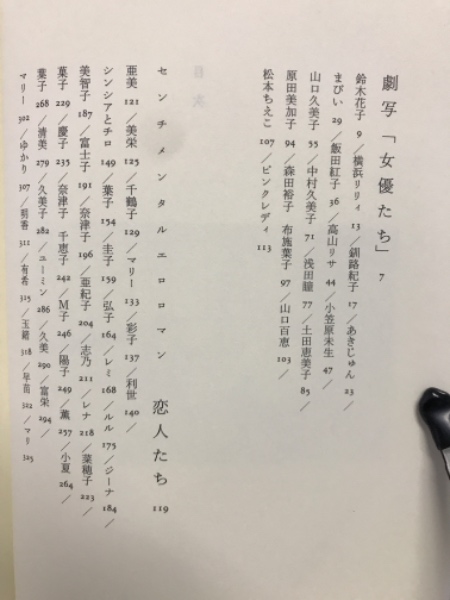 劇写「女優たち」 7
鈴木花子 9／横浜リリィ 13／釧路紀子 17／あきじゅん 23／
まびい 29／飯田紅子 36／高山リサ 44／小笠原未生 47／
山口久美子 55／中村久美子 71／浅田瞳 77／土田恵美子 85／
原田美加子 94／森田裕子 布施葉子 97／山口百恵 103／
松本ちえこ 107／ピンクレディ 113
センチメンタルエロロマン 恋人たち 119
亜美 121／美栄 125／千鶴子 129／マリー 133／彩子 137／利世 140／
シンシアとチロ 149／葉子 154／圭子 159／弘子 164／レミ 168／ルル 175／ジーナ 184／
美智子 187／富士子 191／奈津子 196／亜紀子 204／志乃 211／レナ 218／菜穂子 223／
菓子 229／慶子 235／奈津子 千恵子 242／M子 246／陽子 249／薫 257／小夏 264／
葉子 268／清美 279／久美子 282／ユーミン 286／久美 290／富栄 294／
マリー 302／ゆかり 307／明香 311／有希 315／玉緒 318／早苗 322／マリ 325